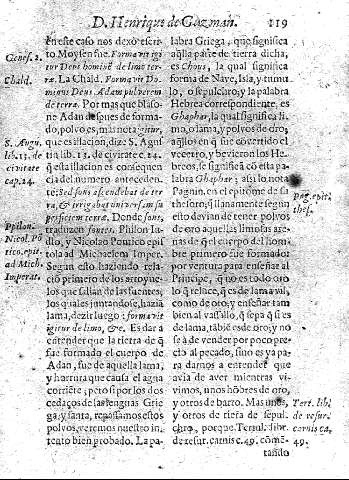 D. Henrique de Guzman. 119
en este caso nos dexò escrito
Moysen fue. Formavit igitur
Deus hominem de limo terræ.
La Chald. Formavit Dominus
Deus Adam pulverem
de terra. Por mas que blasone
Adan despues de formado,
polvo es, mas nota igitur,
que es illacion, dize S. Agustin
lib. 13. de civitate c. 24.
q̃ esta illacion es consequencia
del numero antecedente:
Sed fons ascendebat de terra,
& irrigabat universam superficiem
terræ. Donde fons,
traduzen fontes. Philon Iudio,
y Nicolao Pontico epist
ad Michaelem Imper.
Segun esto haziendo relacion
primero de los arroyuelos
que salian de las fuentes;
los quales juntandose, hazia
lama, dezir luego: formavit
igitur de limo, &c. Es dar à
entender que la tierra de q̃
fue formado el cuerpo de
Adan, fue de aquella lama,
y horrura que causa el agua
corriẽte; pero si por los dos
cedaços de las lenguas Griega,
y santa, repassamos estos
polvos, veremos nuestro intento
bien probado. La palabra
Griega, que significa
aq̃lla parte de tierra dicha,
es Chous, la qual significa
forma de Nave, Isla, y tumulo,
o sepulchro, y la palabra
Hebrea correspondiente, es
Ghaphar, la qual significa limo,
o lama, y polvos de oro;
aq̃llos en q̃ fue covertido el
vecerro, y bevieron los Hebreos,
se significã cõ esta palabra
Ghaphar; assi lo nota
Pagnin. en el epitome de su
thesoro; q̃ llanamente segun
esto devian de tener polvos
de oro aquellas limosas arenas
de q̃ el cuerpo del hombre
primero fue formado:
por ventura para enseñar al
Principe, q̃ no es todo oro
lo q̃ reluce, q̃ es de lama vil,
como de oro; y enseñar tambien
al vassallo, q̃ sepa q̃ si es
de lama, tãbiẽ es de oro; y no
se à de vender por poco precio
al pecado, sino es ya para
darnos à entender que
avia de aver mientras vivimos,
unos hõbres de oro,
y otros de barro. Mas unos,
y otros de tierra de sepulchro,
porque Tertul. lib.
de resur. carnis c. 49. comẽ-
tando
Genes. 2.
Chald.
S. Augu
lib. 13. de
civitate
cap. 24.
Philon.
Nicol. Põ
tico. epist.
ad Mich.
Imperat.
Pag. epit.
thes.
Tert. lib.
de resur.
carnis ca.
49.